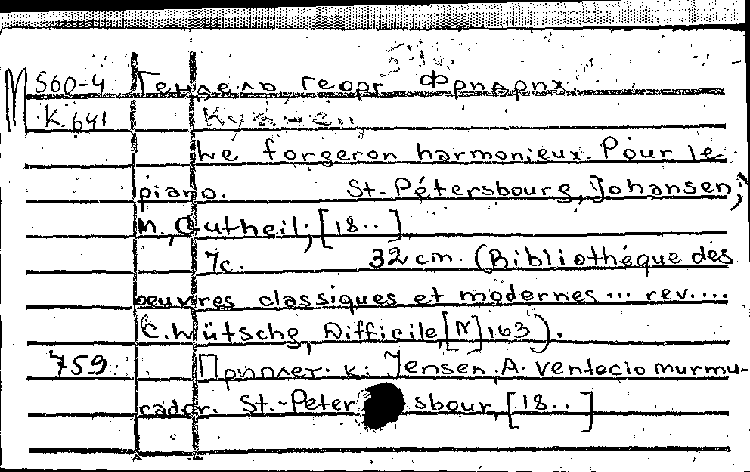 M 560-4 Гендель, Георг Фридрих.
К 641 Кузнец,
Le forgeron harmonieux. Pour le
piano. St.-Pétersbourg, Johansen;
M., Gutheil; [18..]
7c. 32 cm. (Bibliothéque des
oeuvres classiques et modernes ... rev....
C. Wütsche, Difficile, [N] 163).
759 Приплет. к: Jensen, A. Ventecio murmu-
rador. St.-Peter sbour, [18..]